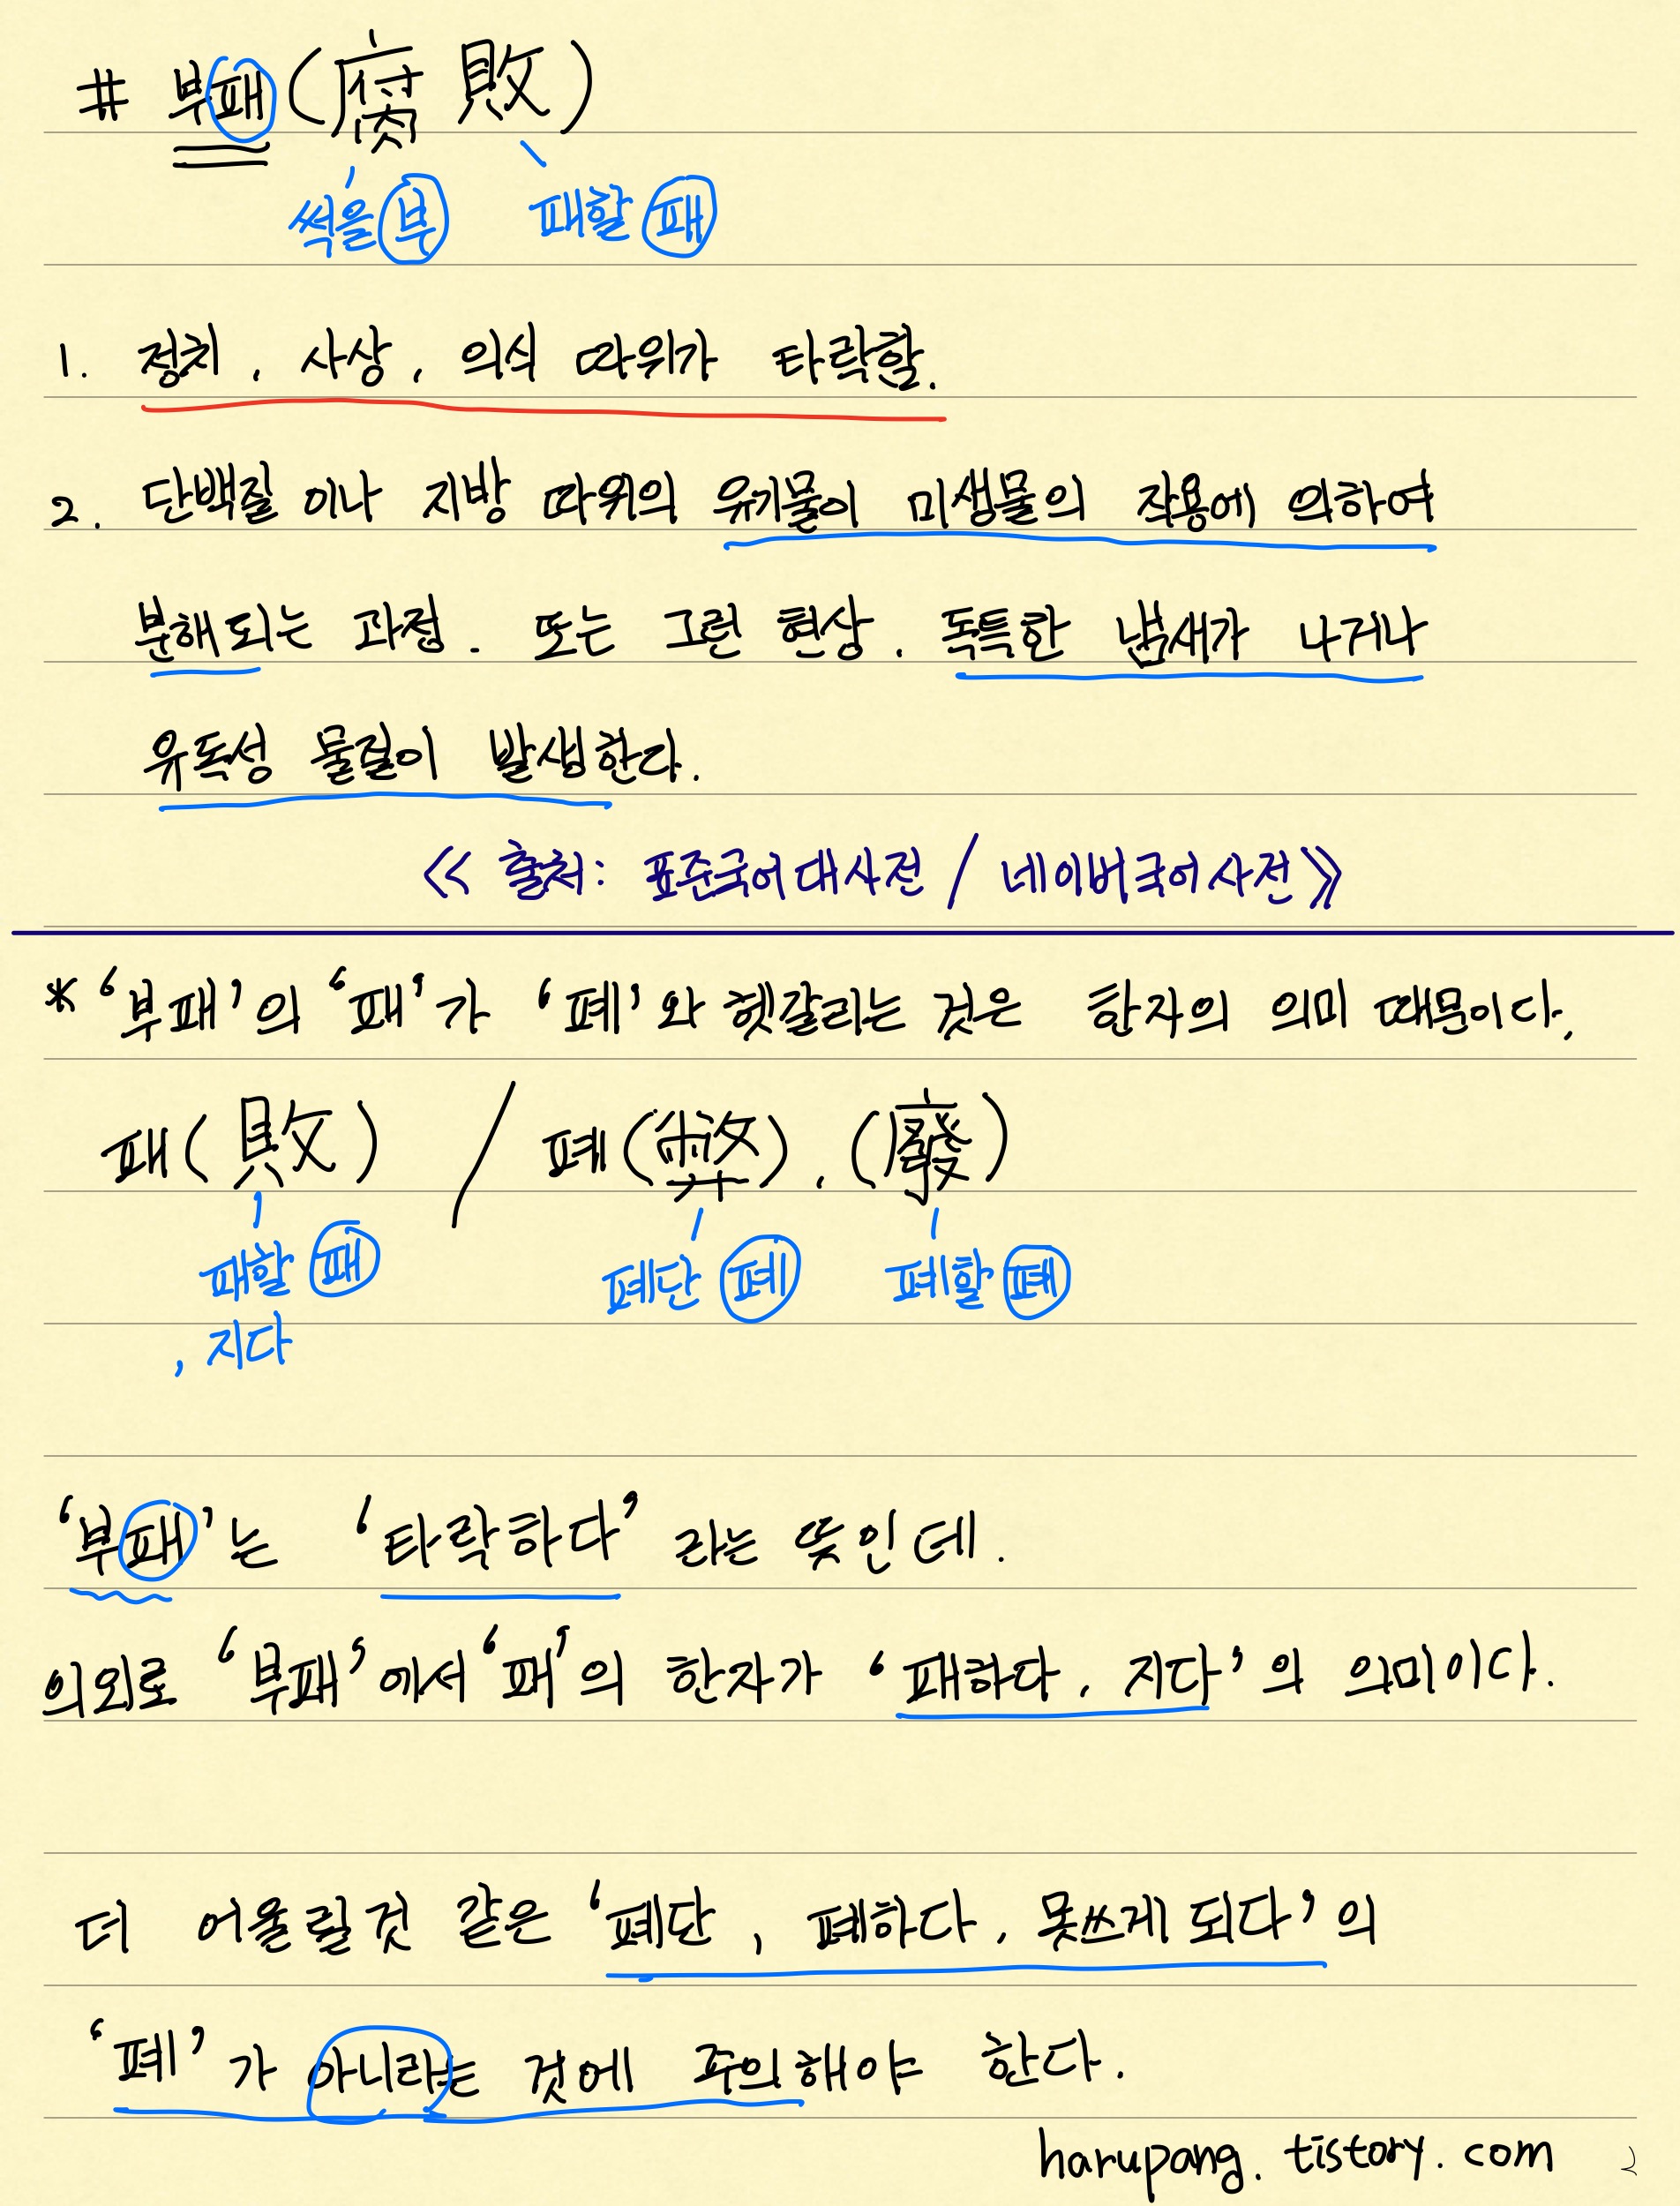 # 부패(腐敗)
썩을 부 패할 패
1. 정치, 사상, 의식 따위가 타락할.
2. 단백질이나 지방 따위의 유기물이 미생물의 작용에 의하여
분해되는 과정. 또는 그런 현상. 독특한 냄새가 나거나
유독성 물질이 발생한다.
《출처: 표준국어대사전 / 네이버국어사전》
* '부패'의 '패'가 '폐'와 헷갈리는 것은 한자의 의미 때문이다.
패(敗) / 폐(弊), (廢)
패할 패 폐단 폐 폐할 폐
, 지다
'부패'는 '타락하다' 라는 뜻인데.
의외로 '부패'에서 '패'의 한자가 '패하다, 지다'의 의미이다.
더 어울릴것 같은 '폐단, 폐하다, 못쓰게 되다'의
'폐'가 아니라는 것에 주의해야 한다.
harupang.tistory.com